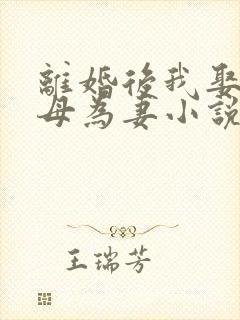 離婚後我娶
母為妻小說
王瑞芳